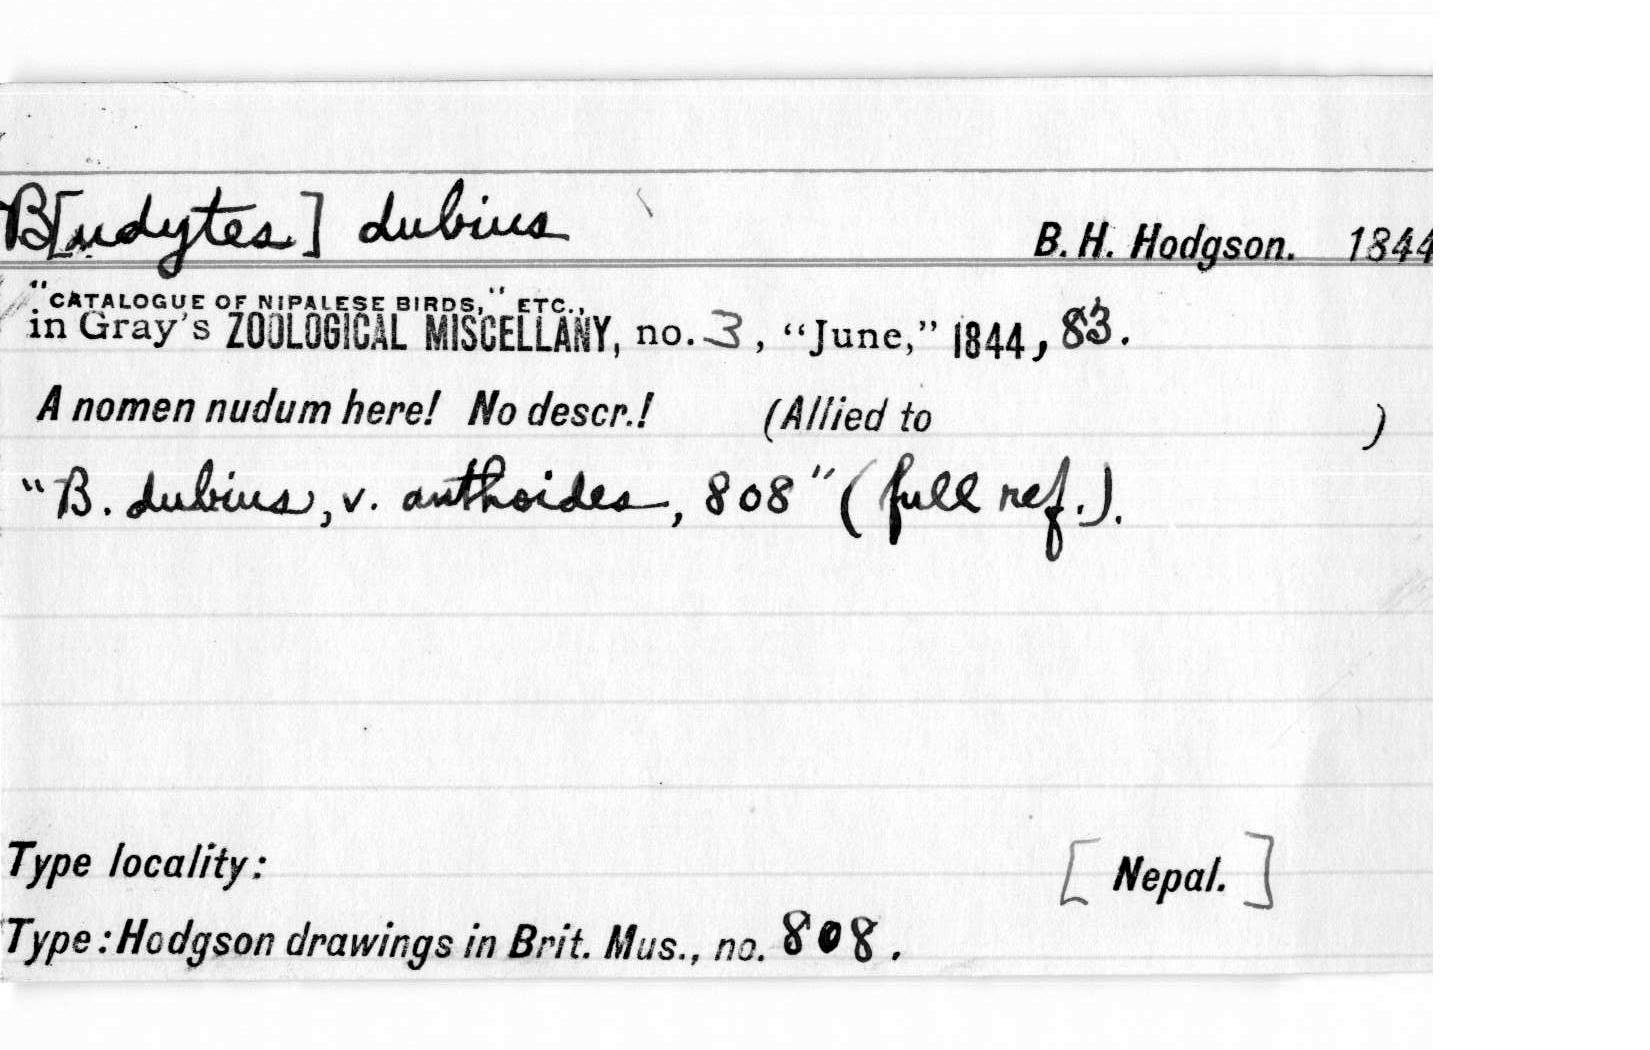 B[udytes] dubius
B. H. Hodgson. 1844
"CATALOGUE OF NIPALESE BIRDS," ETC.,
in Gray's ZOOLOGICAL MISCELLANY, no. 3, "June," 1844, 83.
A nomen nudum here! No descr.! (Allied to )
"B. dubius, v. anthoides, 808" (full ref.).
Type locality: [Nepal.]
Type: Hodgson drawings in Brit. Mus., no. 808.